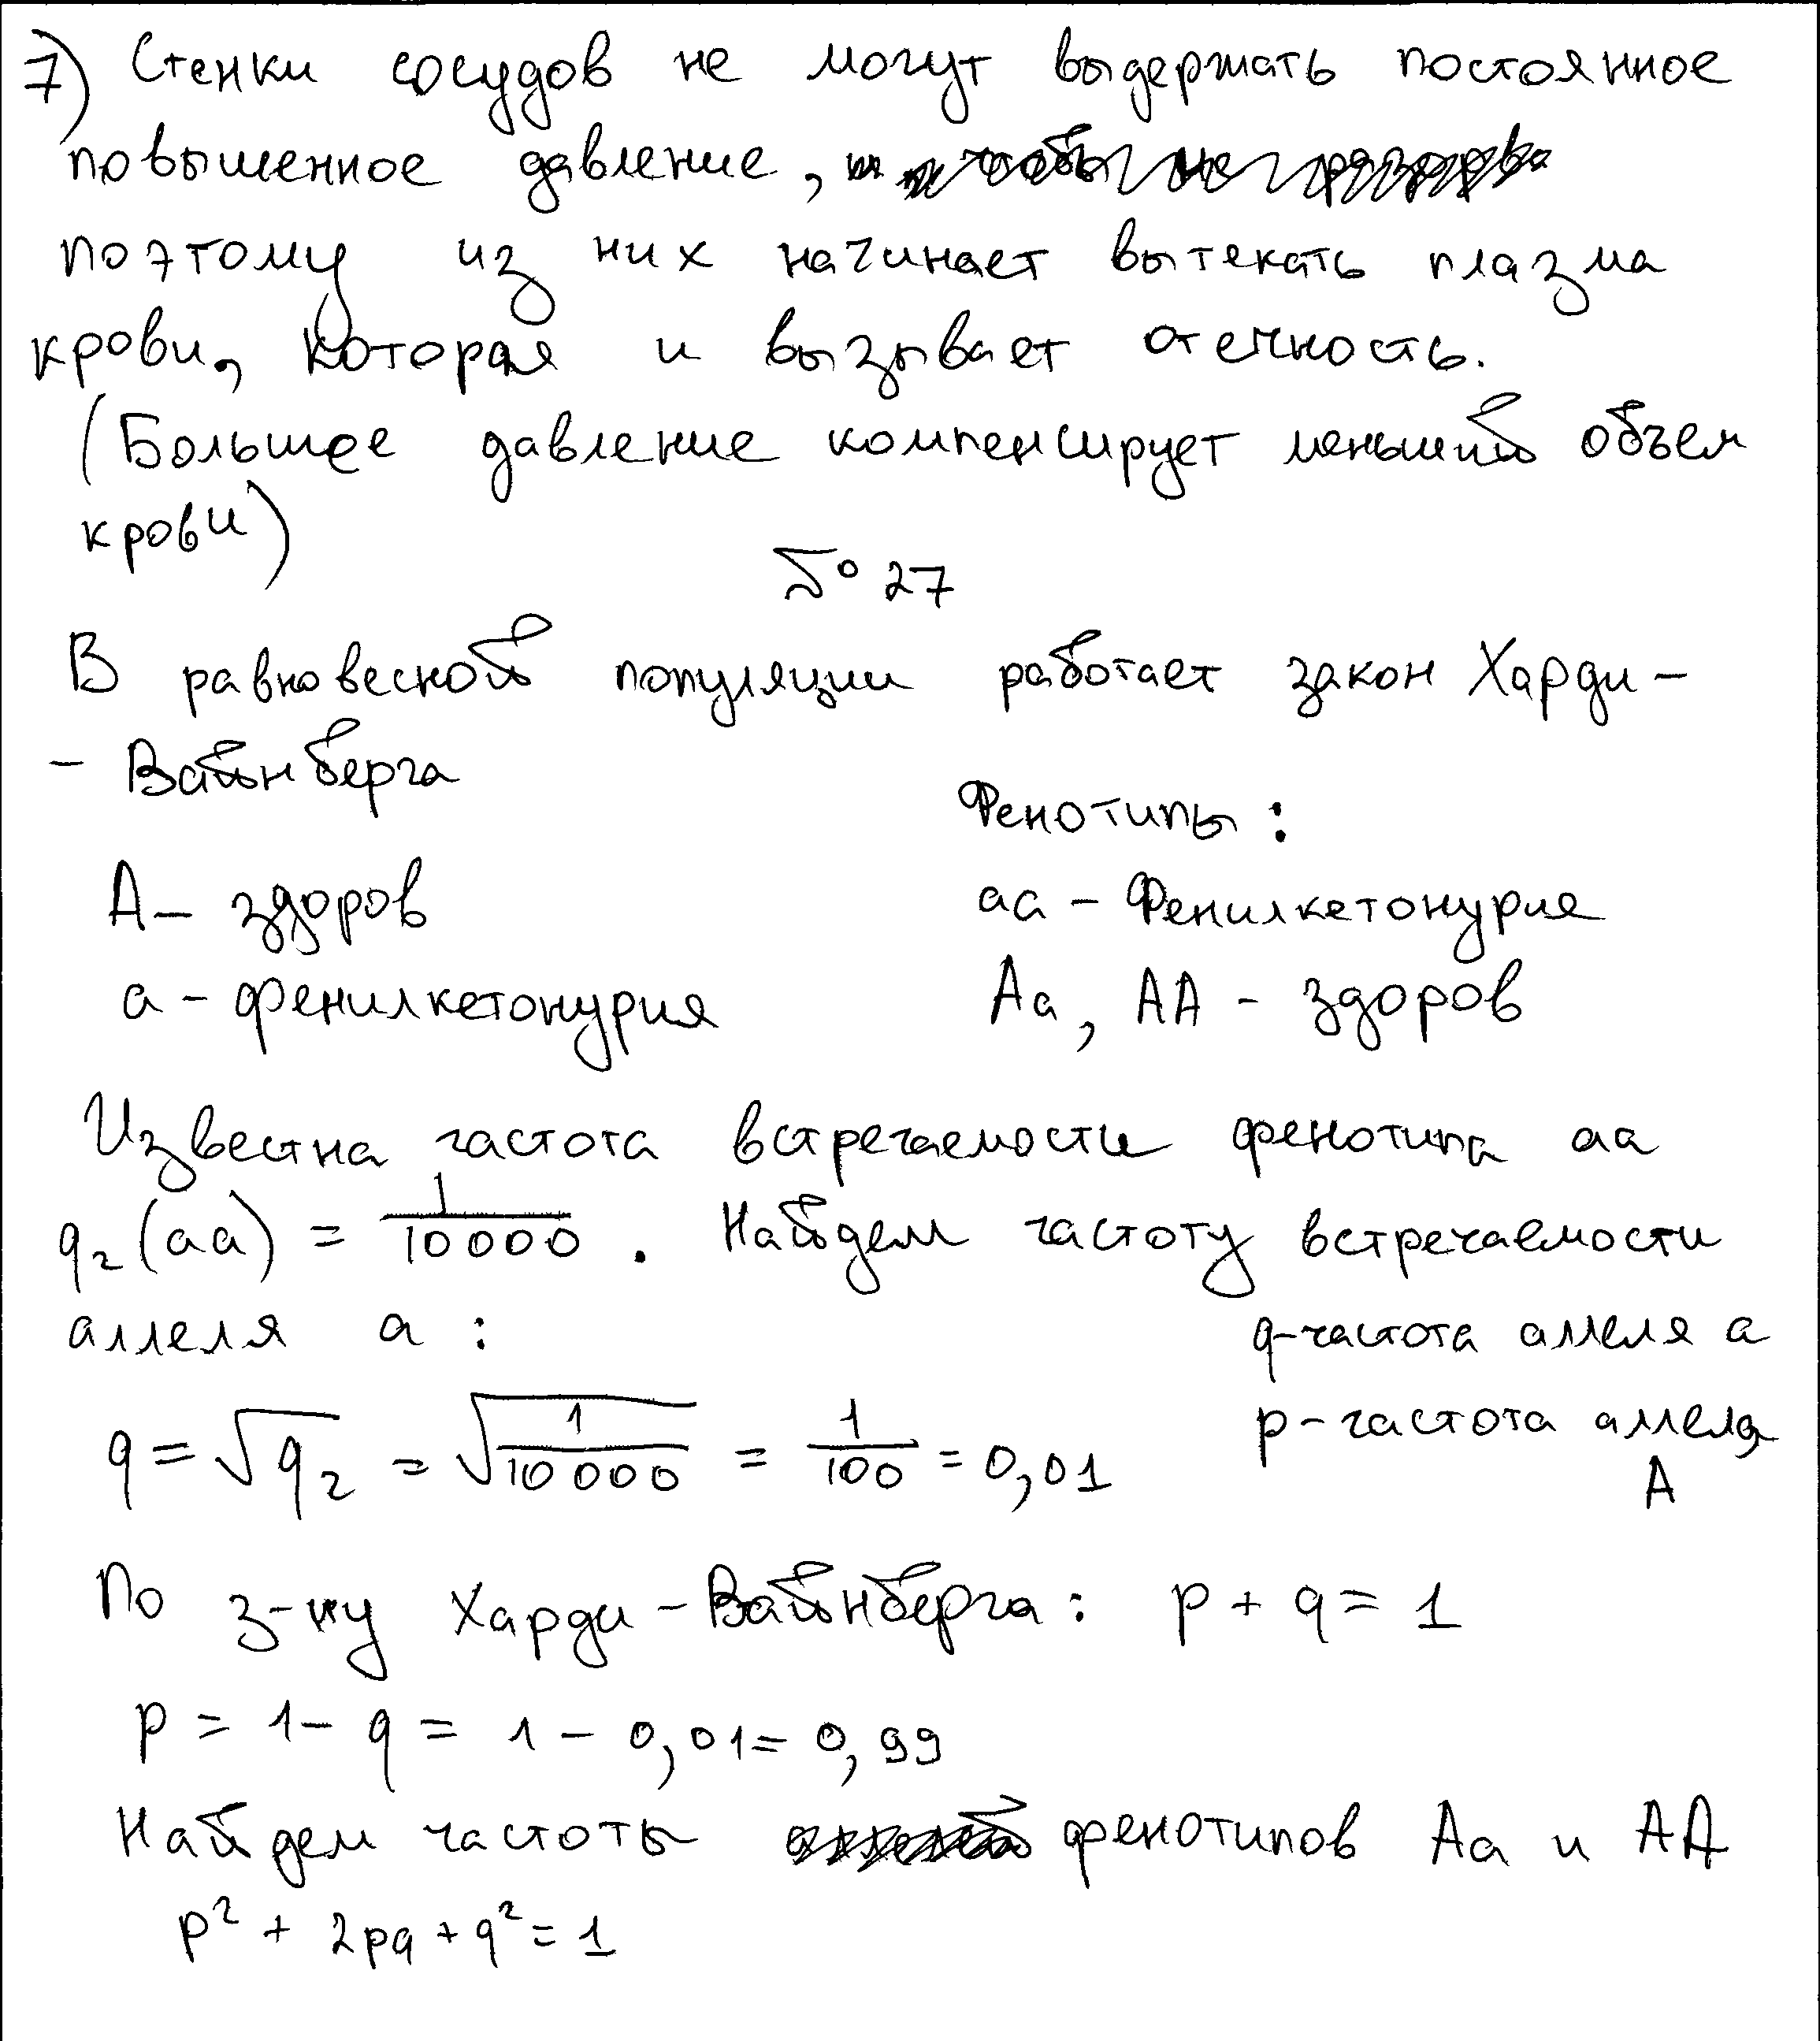 7) Стенки сосудов не могут выдержать постоянное
повышенное давление,
поэтому из них начинает вытекать плазма
крови, которая и вызывает отечность.
(Большее давление компенсирует меньший объем
крови)
№ 27
В равновесной популяции работает закон Харди -
- Вайнберга
Фенотипы :
А - здоров
аа - Фенилкетонурия
а - фенилкетонурия
Аа, АА - здоров
Известна частота встречаемости фенотипа аа
q₂(аа) = 1/10000 . Найдем частоту встречаемости
аллеля а :
q - частота аллеля а
p - частота аллеля
А
q = √q₂ = √(1/10000) = 1/100 = 0,01
По з-ну Харди - Вайнберга : p + q = 1
p = 1 - q = 1 - 0,01 = 0,99
Найдем частоты фенотипов Аа и АА
p² + 2pq + q² = 1